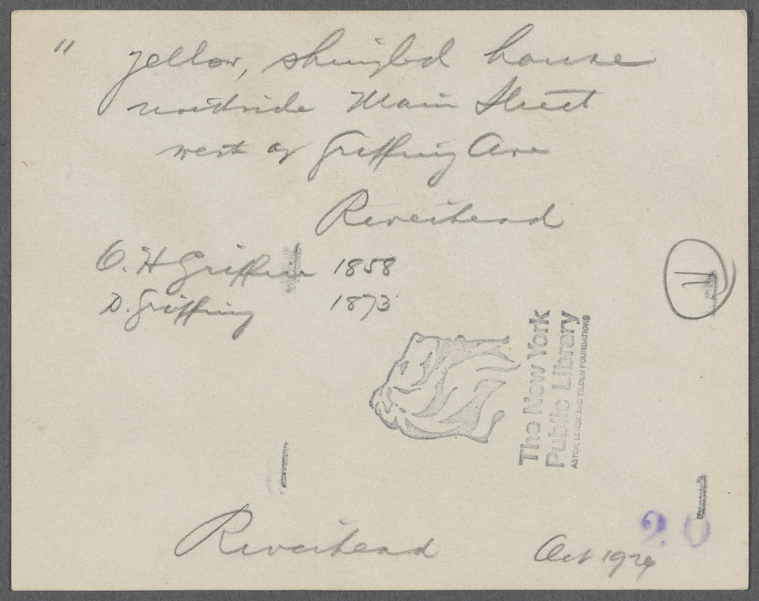 " yellow, shingled house
northside Main Street
west of Griffing Ave
Riverhead
O. H Griffin 1858
D. Griffing 1873
11
The New York
Public Library
ASTOR, LENOX AND TILDEN FOUNDATIONS
20
Riverhead Oct 1924